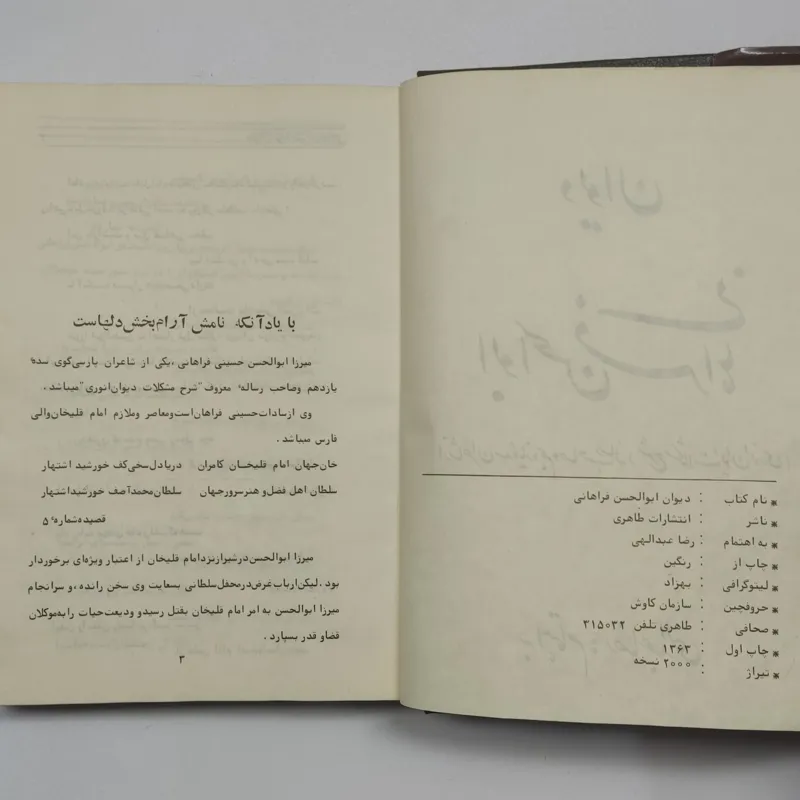 * نام کتاب : دیوان ابوالحسن فراهانی
* ناشر : انتشارات طاهری
* به اهتمام : رضا عبدالهی
* چاپ از : رنگین
* لیتوگرافی : بهزاد
* حروفچین : سازمان کاوش
* صحافی : طاهری تلفن ۳۱۵۰۳۲
* چاپ اول : ۱۳۶۳
* تیراژ : ۲۰۰۰ نسخه
با یادآنکه نامش آرام‌بخش دلهاست
میرزا ابوالحسن حسینی فراهانی ،یکی از شاعران پارسی‌گوی سدهٔ
یازدهم وصاحب رسالهٔ معروف "شرح مشکلات دیوان‌انوری "میباشد .
وی ازسادات‌حسینی فراهان‌است‌ومعاصر وملازم امام قلیخان‌والی
فارس میباشد .
خان‌جهان امام قلیخـان کامران دریادل‌سخی‌کف خورشید اشتهار
سلطان اهل فضل‌و هنرسرورجهان سلطان‌محمدآصف خورشیداشتهار
قصیده‌شمارهٔ ۵
میرزا ابوالحسن‌درشیرازنزدامام قلیخان از اعتبار ویژه‌ای برخوردار
بود ،لیکن‌ارباب‌غرض‌درمحفل‌سلطانی بسعایت وی سخن رانده ،و سرانجام
میرزا ابوالحسن به امر امام قلیخان بقتل رسیدو ودیعت‌حیات را به‌موکلان
قضاو قدر بسپارد .
۳